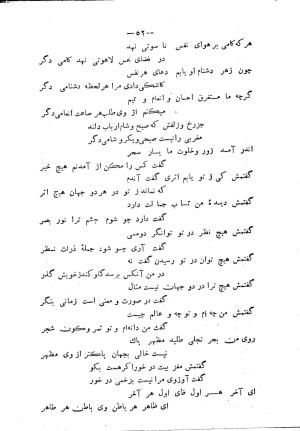 — ۵۲ —
هر که کامی بر هوای نفس نا سوتی نهد
در فضای نفس لاهوتی نهد گامی دگر
چون زهر دشنام او یابم دعای هر نفس
کاشکی دادی مرا هر لحظه دشنامی دگر
گرچه ما مستغرق احسان و انعام و تیم
میکنم از وی طلب هر ساعت انعامی دگر
جز رخ و زلفش که صبح و شام ارباب دلند
مغربی را نیست صبحی و بکر و شامی دگر
اندر آمد زور و خلوت ما یسار سحر
گفت کس را مکن از آمدنم هیچ خبر
گفتمش کی ز تو یابم اثری گفت آندم
که نماند ز تو در هر دو جهان هیچ اثر
گفتمش دیدهٔ من تاب جمالت دارد
گفت دارد چو شوم چشم ترا نور بصر
گفتمش هیچ نظر در تو توانگر دوسی
گفت آری چو شود جملهٔ ذرات نظر
گفتمش هیچ توان در تو رسیدن گفت نه
در من آنکس برسد گاو کند از خویش گذر
گفتمش هیچ ترا در دو جهان نیست مثال
گفت در صورت و معنی است زمانی بنگر
گفتمش من چه ام و تو چه و عالم چیست
گفت من دانه ام و تو ثمر و کون شجر
روی من بحر تجلی طلبد مظهر پاک
نیست خالی بجهان پاکتر از وی مظهر
گفتمش مغز بیت در خور آکر هست بکو
گفت آوری مرا نیست بزخمی در خور
ای آخر هر اول وی اول هر آخر
ای ظاهر هر باطن وی باطن هر ظاهر